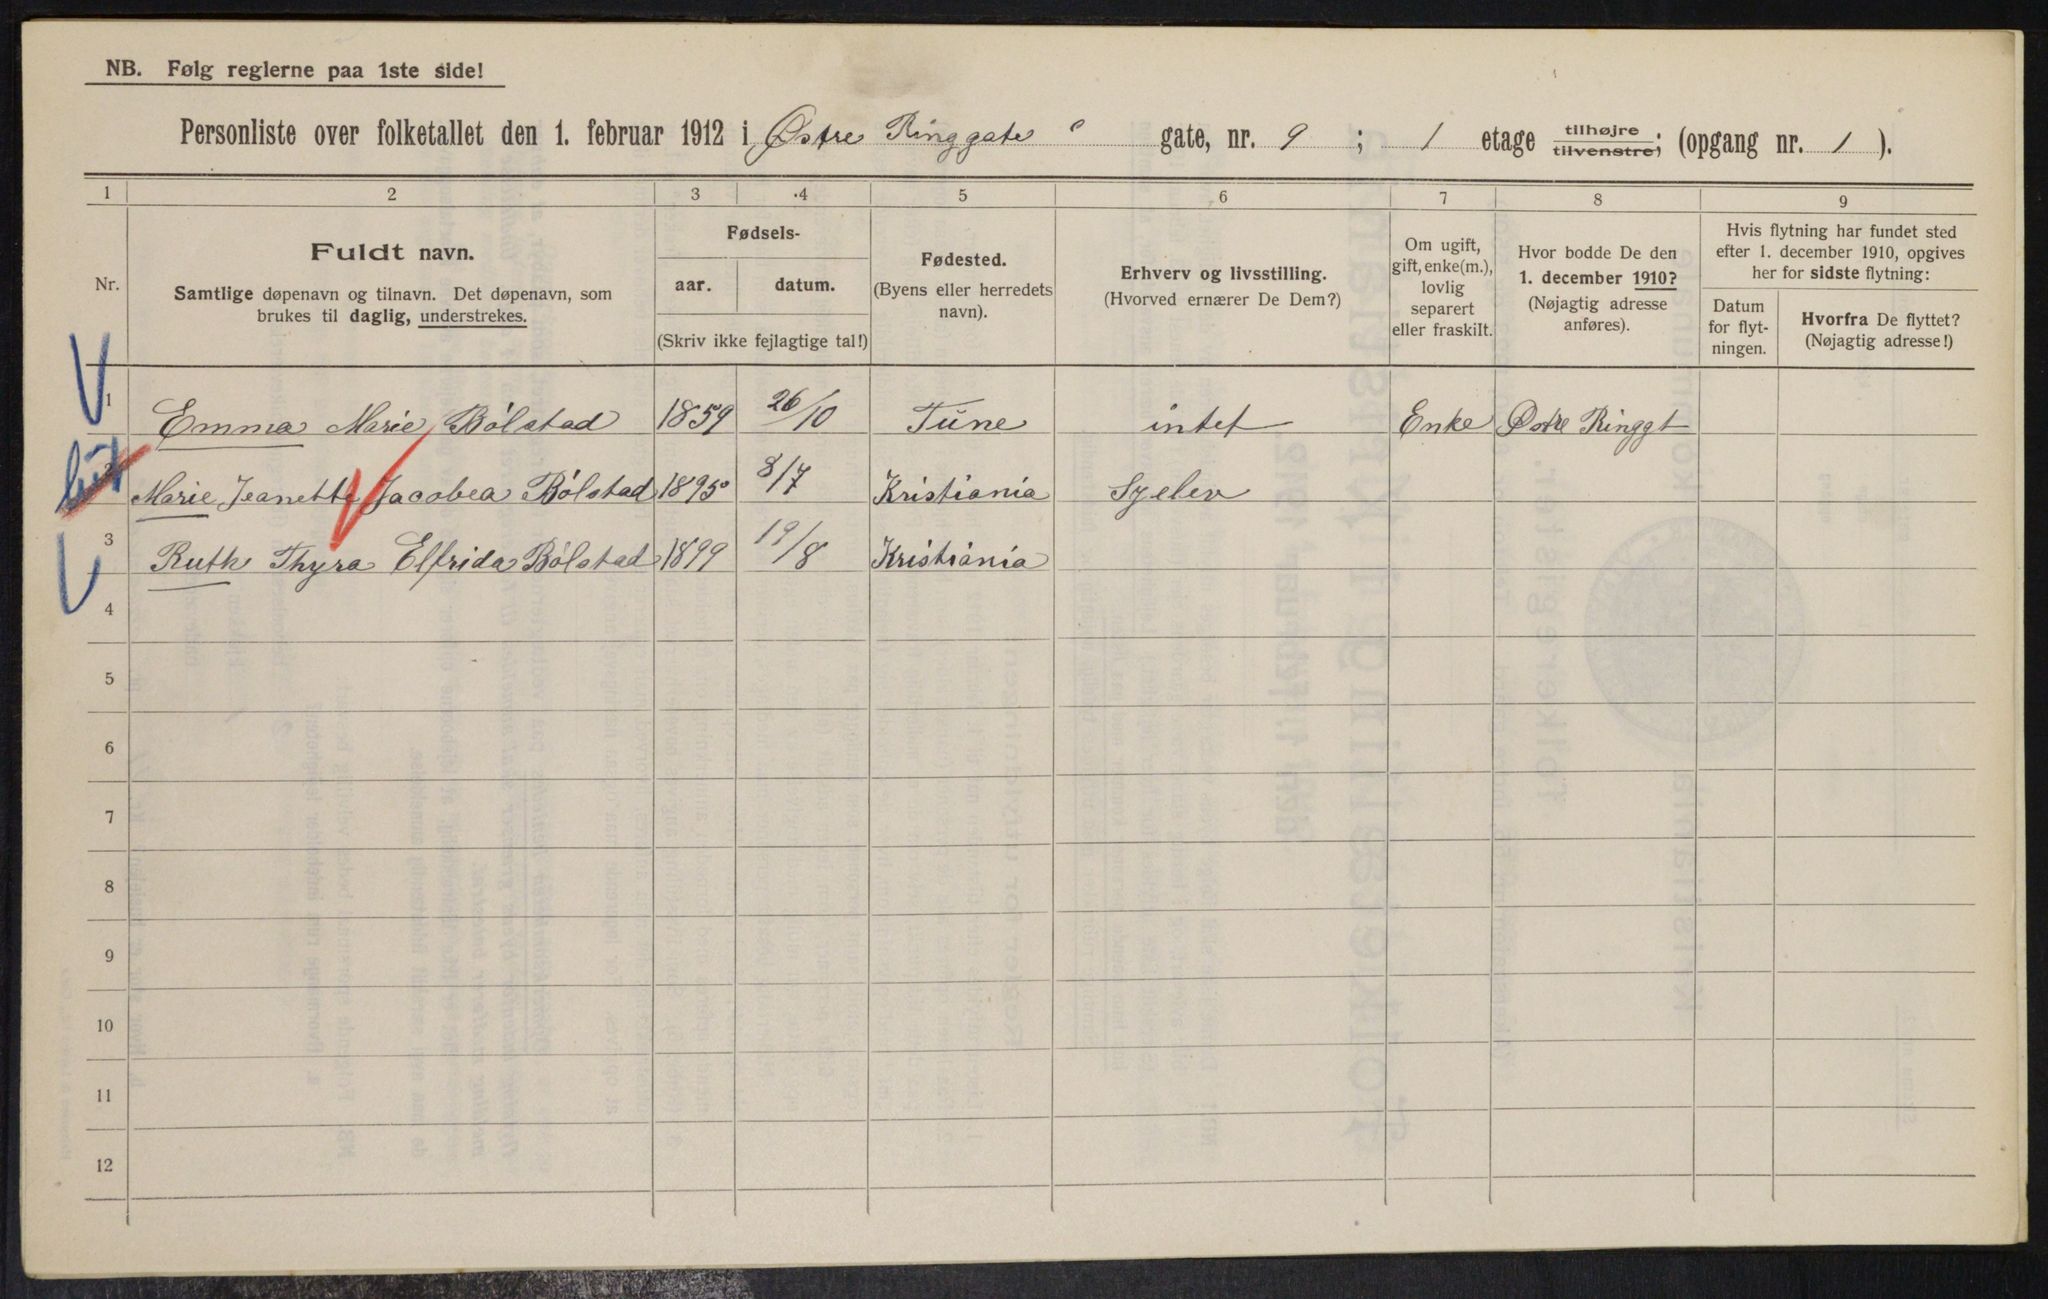 NB. Følg reglerne paa 1ste side!
Personliste over folketallet den 1. februar 1912 i Østre Ringgate gate, nr. 9 ; 1 etage tilhøjre tilvenstre; (opgang nr. 1 ).
1 2 3 4 5 6 7 8 9
Nr.
Fuldt navn.
Samtlige døpenavn og tilnavn. Det døpenavn, som
brukes til daglig, understrekes.
Fødsels-
aar. datum.
(Skriv ikke fejlagtige tal!)
Fødested.
(Byens eller herredets
navn).
Erhverv og livsstilling.
(Hvorved ernærer De Dem?)
Om ugift,
gift, enke(m.),
lovlig
separert
eller fraskilt.
Hvor bodde De den
1. december 1910?
(Nøjagtig adresse
anføres).
Hvis flytning har fundet sted
efter 1. december 1910, opgives
her for sidste flytning:
Datum
for flyt-
ningen.
Hvorfra De flyttet?
(Nøjagtig adresse!)
1 Emma Marie Bólstad 1859 26/10 Tune intet Enke Østre Ringgt
2 Marie Jeanette Jacobea Bólstad 1895 8/7 Kristiania Syelev
3 Ruth Thyra Elfrida Bólstad 1899 19/8 Kristiania
4
5
6
7
8
9
10
11
12